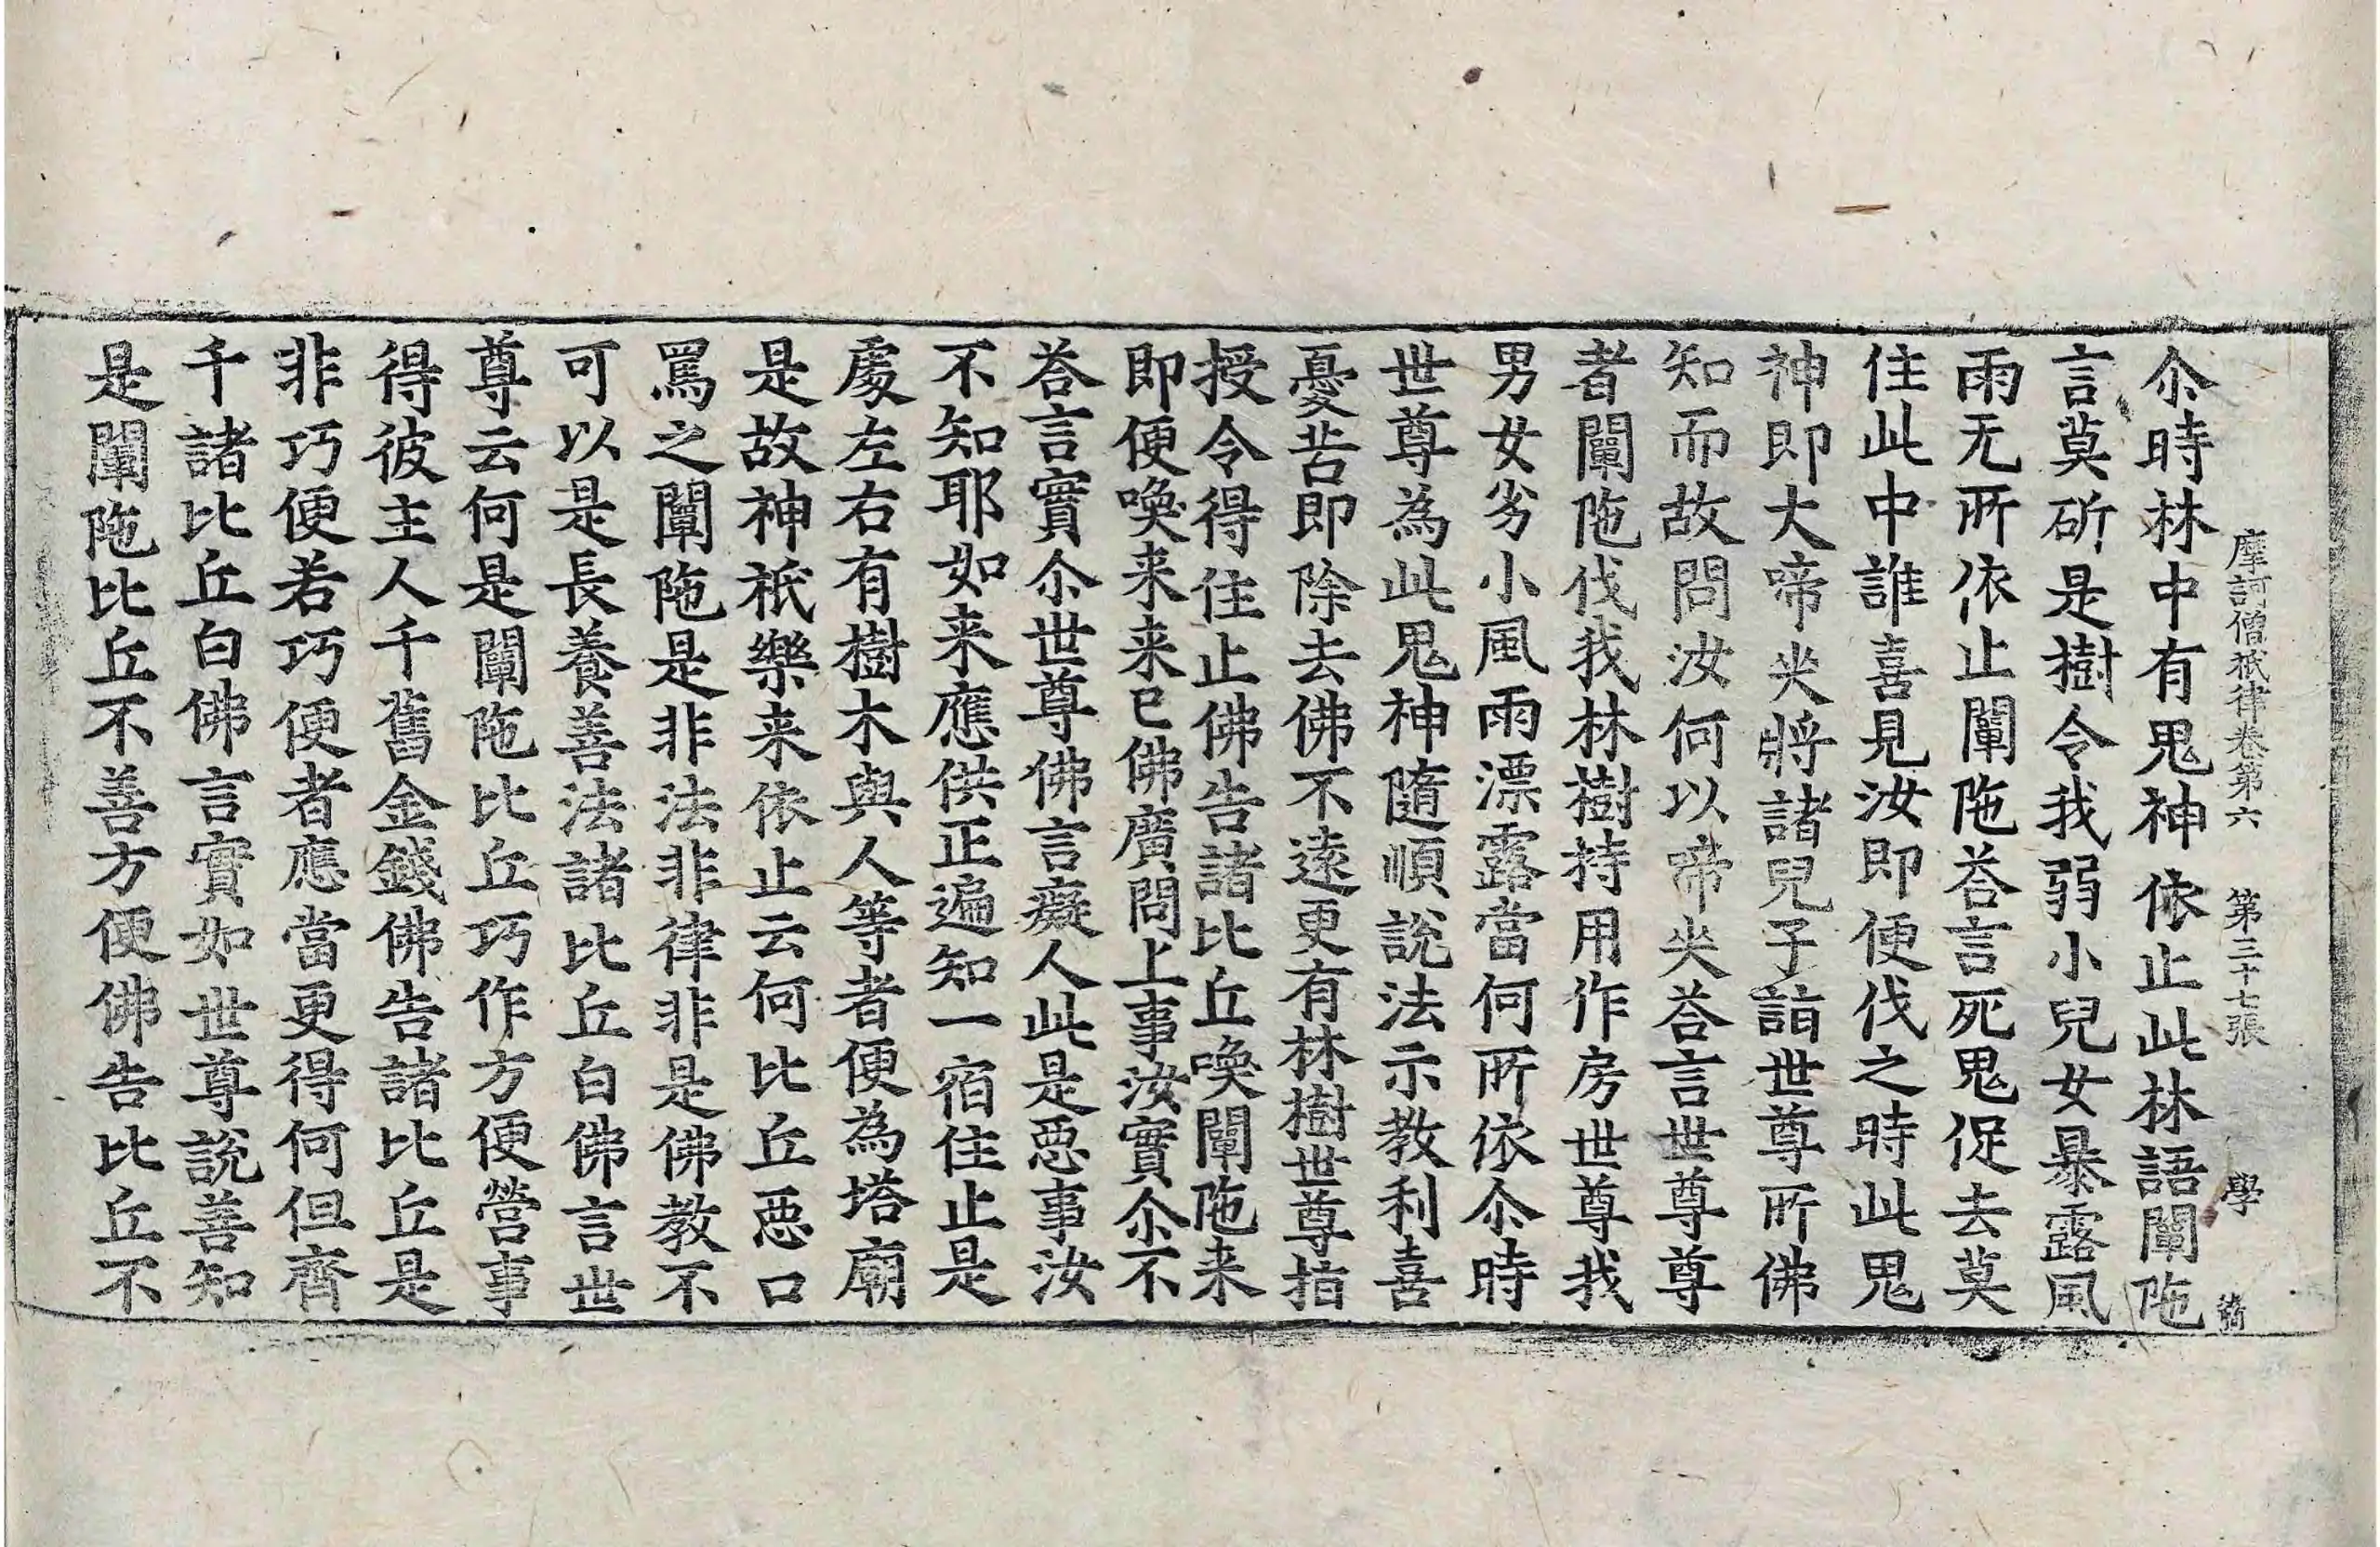 摩訶僧祇律卷第六 第三十七張 學
尒時林中有鬼神依止此林語闡陁
言莫斫是樹令我弱小兒女暴露風
雨无所依止闡陁荅言死鬼促去莫
住此中誰喜見汝即便伐之時此鬼
神即大啼哭將諸兒子詣世尊所佛
知而故問汝何以啼哭荅言世尊尊
者闡陁伐我林樹持用作房世尊我
男女劣小風雨漂露當何所依尒時
世尊為此鬼神隨順說法示教利喜
憂苦即除去佛不遠更有林樹世尊指
授令得住止佛告諸比丘喚闡陁来
即便喚来来已佛廣問上事汝實尒不
荅言實尒世尊佛言癡人此是惡事汝
不知耶如来應供正遍知一宿住止是
處左右有樹木與人等者便為塔廟
是故神祇樂来依止云何比丘惡口
罵之闡陁是非法非律非是佛教不
可以是長養善法諸比丘白佛言世
尊云何是闡陁比丘巧作方便營事
得彼主人千舊金錢佛告諸比丘是
非巧便若巧便者應當更得何但齊
千諸比丘白佛言實如世尊說善知
是闡陁比丘不善方便佛告比丘不